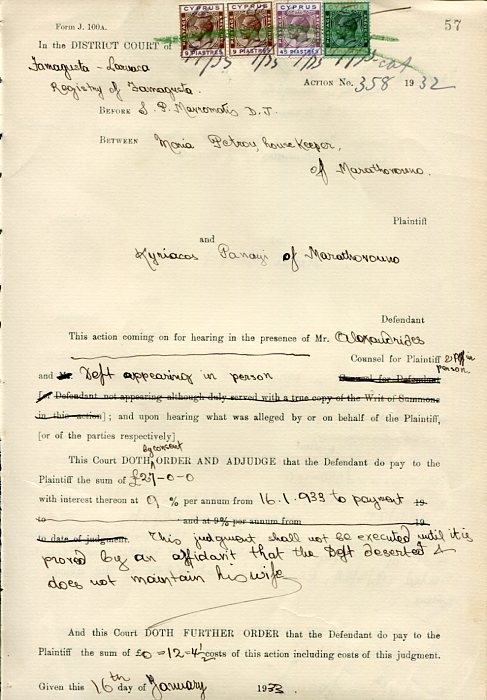 Form J. 100A.
57
CYPRUS CYPRUS CYPRUS
9 PIASTRES 9 PIASTRES 45 PIASTRES
In the DISTRICT COURT of
Famagusta - Larnaca
Registry of Famagusta.
ACTION No. 358 1932
BEFORE S. P. Mavromatis D. J.
BETWEEN Maria Petrou, housekeeper,
of Marathovouno.
Plaintiff
and
Kyriacos Panayi of Marathovouno
Defendant
This action coming on for hearing in the presence of Mr. Alexandrides
Counsel for Plaintiff in person.
and Deft appearing in person Counsel for Defendant
[or Defendant not appearing although duly served with a true copy of the Writ of Summons
in this action]; and upon hearing what was alleged by or on behalf of the Plaintiff,
[or of the parties respectively]
by consent
This Court DOTH ORDER AND ADJUDGE that the Defendant do pay to the
Plaintiff the sum of £27-0-0
with interest thereon at 9 % per annum from 16.1.933 to payment 19
to and at 9% per annum from 19
to date of judgment. This judgment shall not be executed until it is
proved by an affidavit that the Deft deserted &
does not maintain his wife
And this Court DOTH FURTHER ORDER that the Defendant do pay to the
Plaintiff the sum of £0-12-4½ costs of this action including costs of this judgment.
Given this 16th day of January 1933